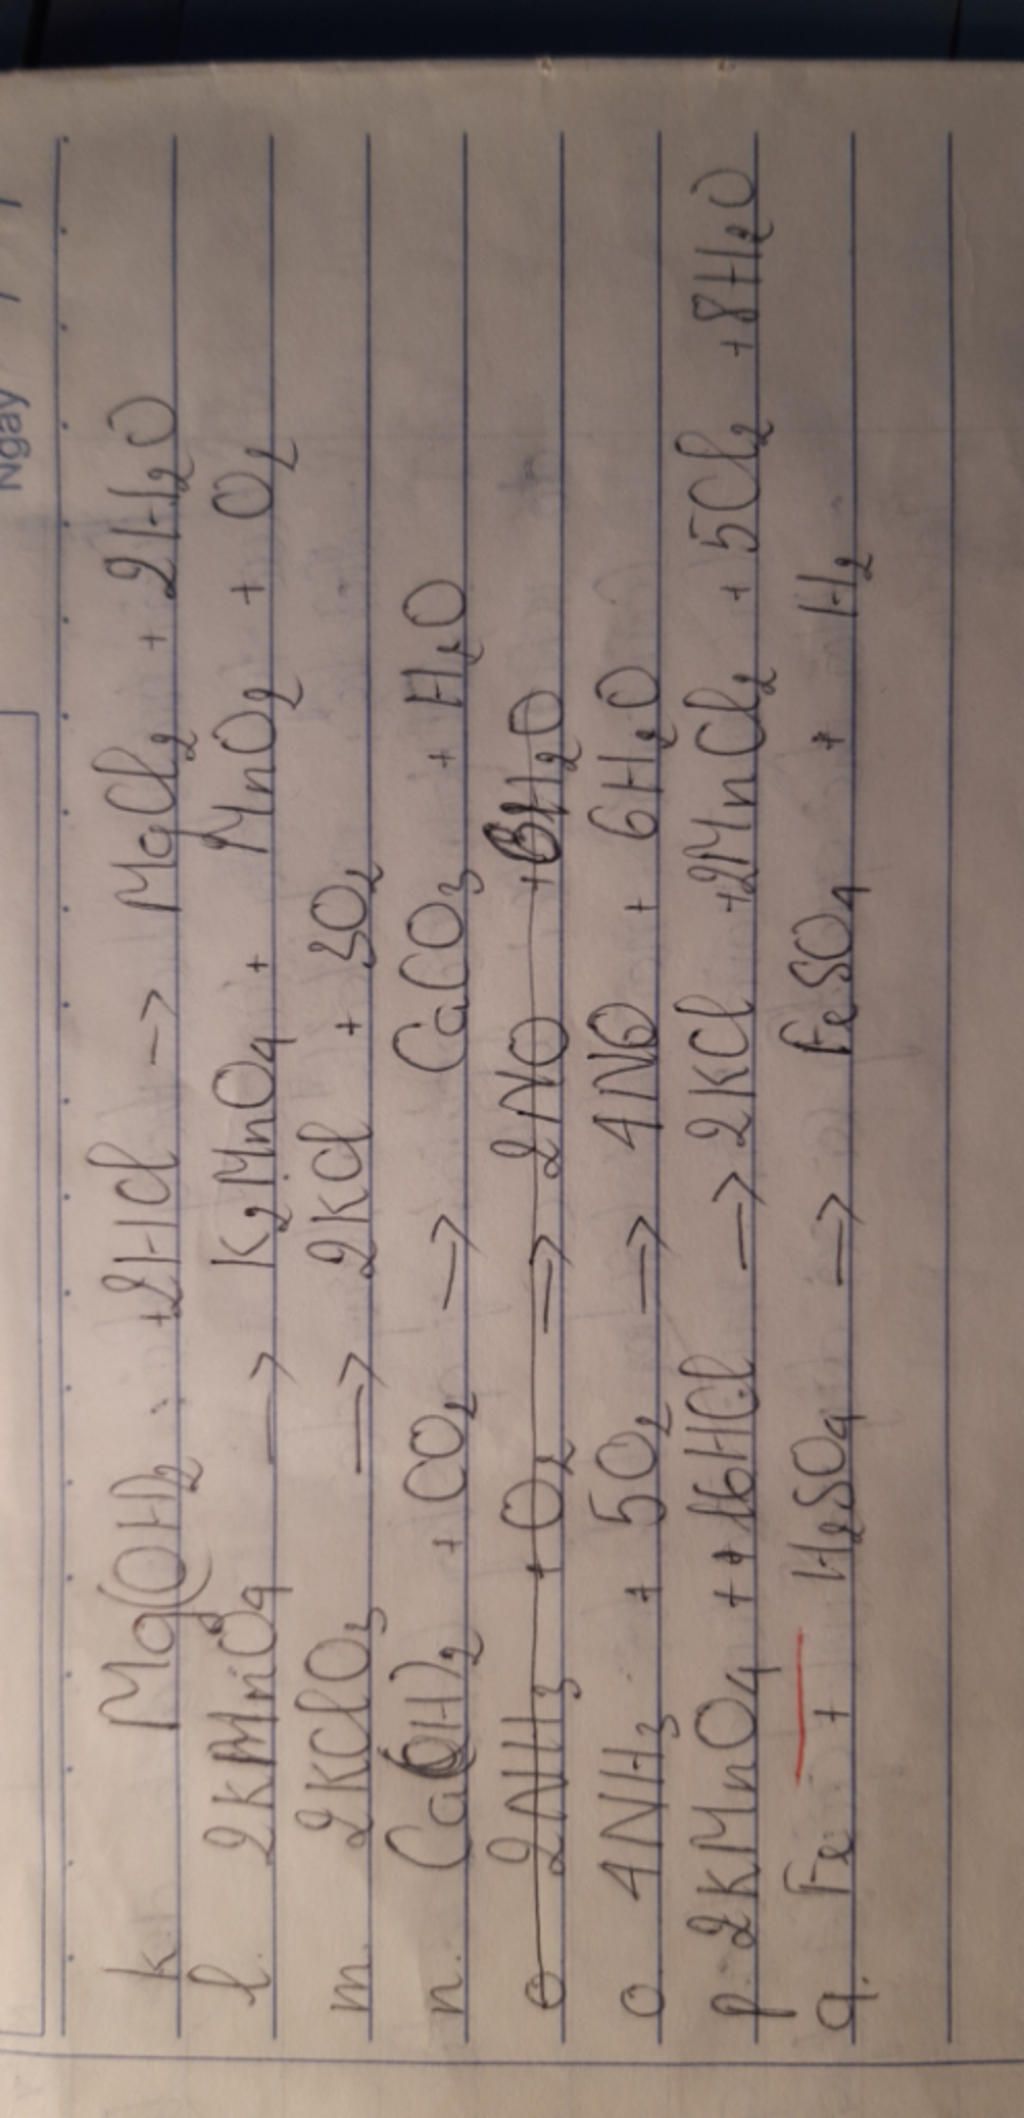 Ngày / /
k. Mg(OH)₂ + 2HCl → MgCl₂ + 2H₂O
l. 2KMnO₄ → K₂MnO₄ + MnO₂ + O₂
m. 2KClO₃ → 2KCl + 3O₂
n. Ca(OH)₂ + CO₂ → CaCO₃ + H₂O
o 2NH₃ + O₂ → 2NO + 3H₂O
o. 4NH₃ + 5O₂ → 4NO + 6H₂O
p. 2KMnO₄ + 16HCl → 2KCl + 2MnCl₂ + 5Cl₂ + 8H₂O
q. Fe + H₂SO₄ → FeSO₄ + H₂